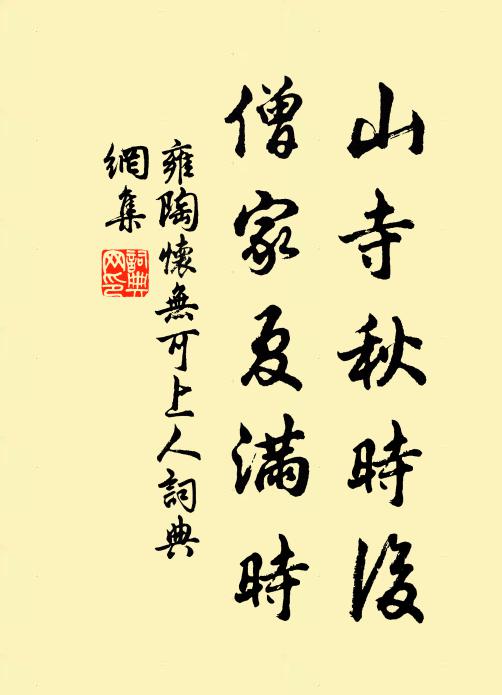 山寺秋時後
僧家夏滿時
雍陶懷無可上人詞典
網集
詞典
网印